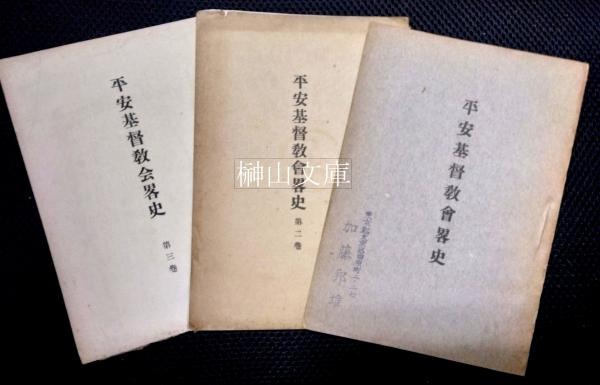 平安基督敎會畧史
加藤邦雄
平安基督敎會畧史
第二巻
平安基督敎会畧史
第三巻
榊山文庫